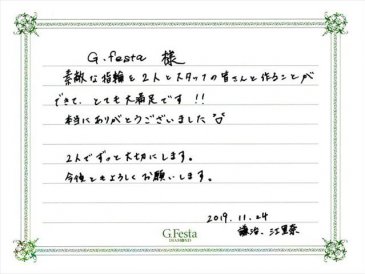 G.festa 様
素敵な指輪を2人とスタッフの皆さんと作ることが
できて、とても大満足です!!
本当にありがとうございました
2人でずっと大切にします。
今後ともよろしくお願いします。
2019.11.24
江里奈
G.Festa
DIAMOND